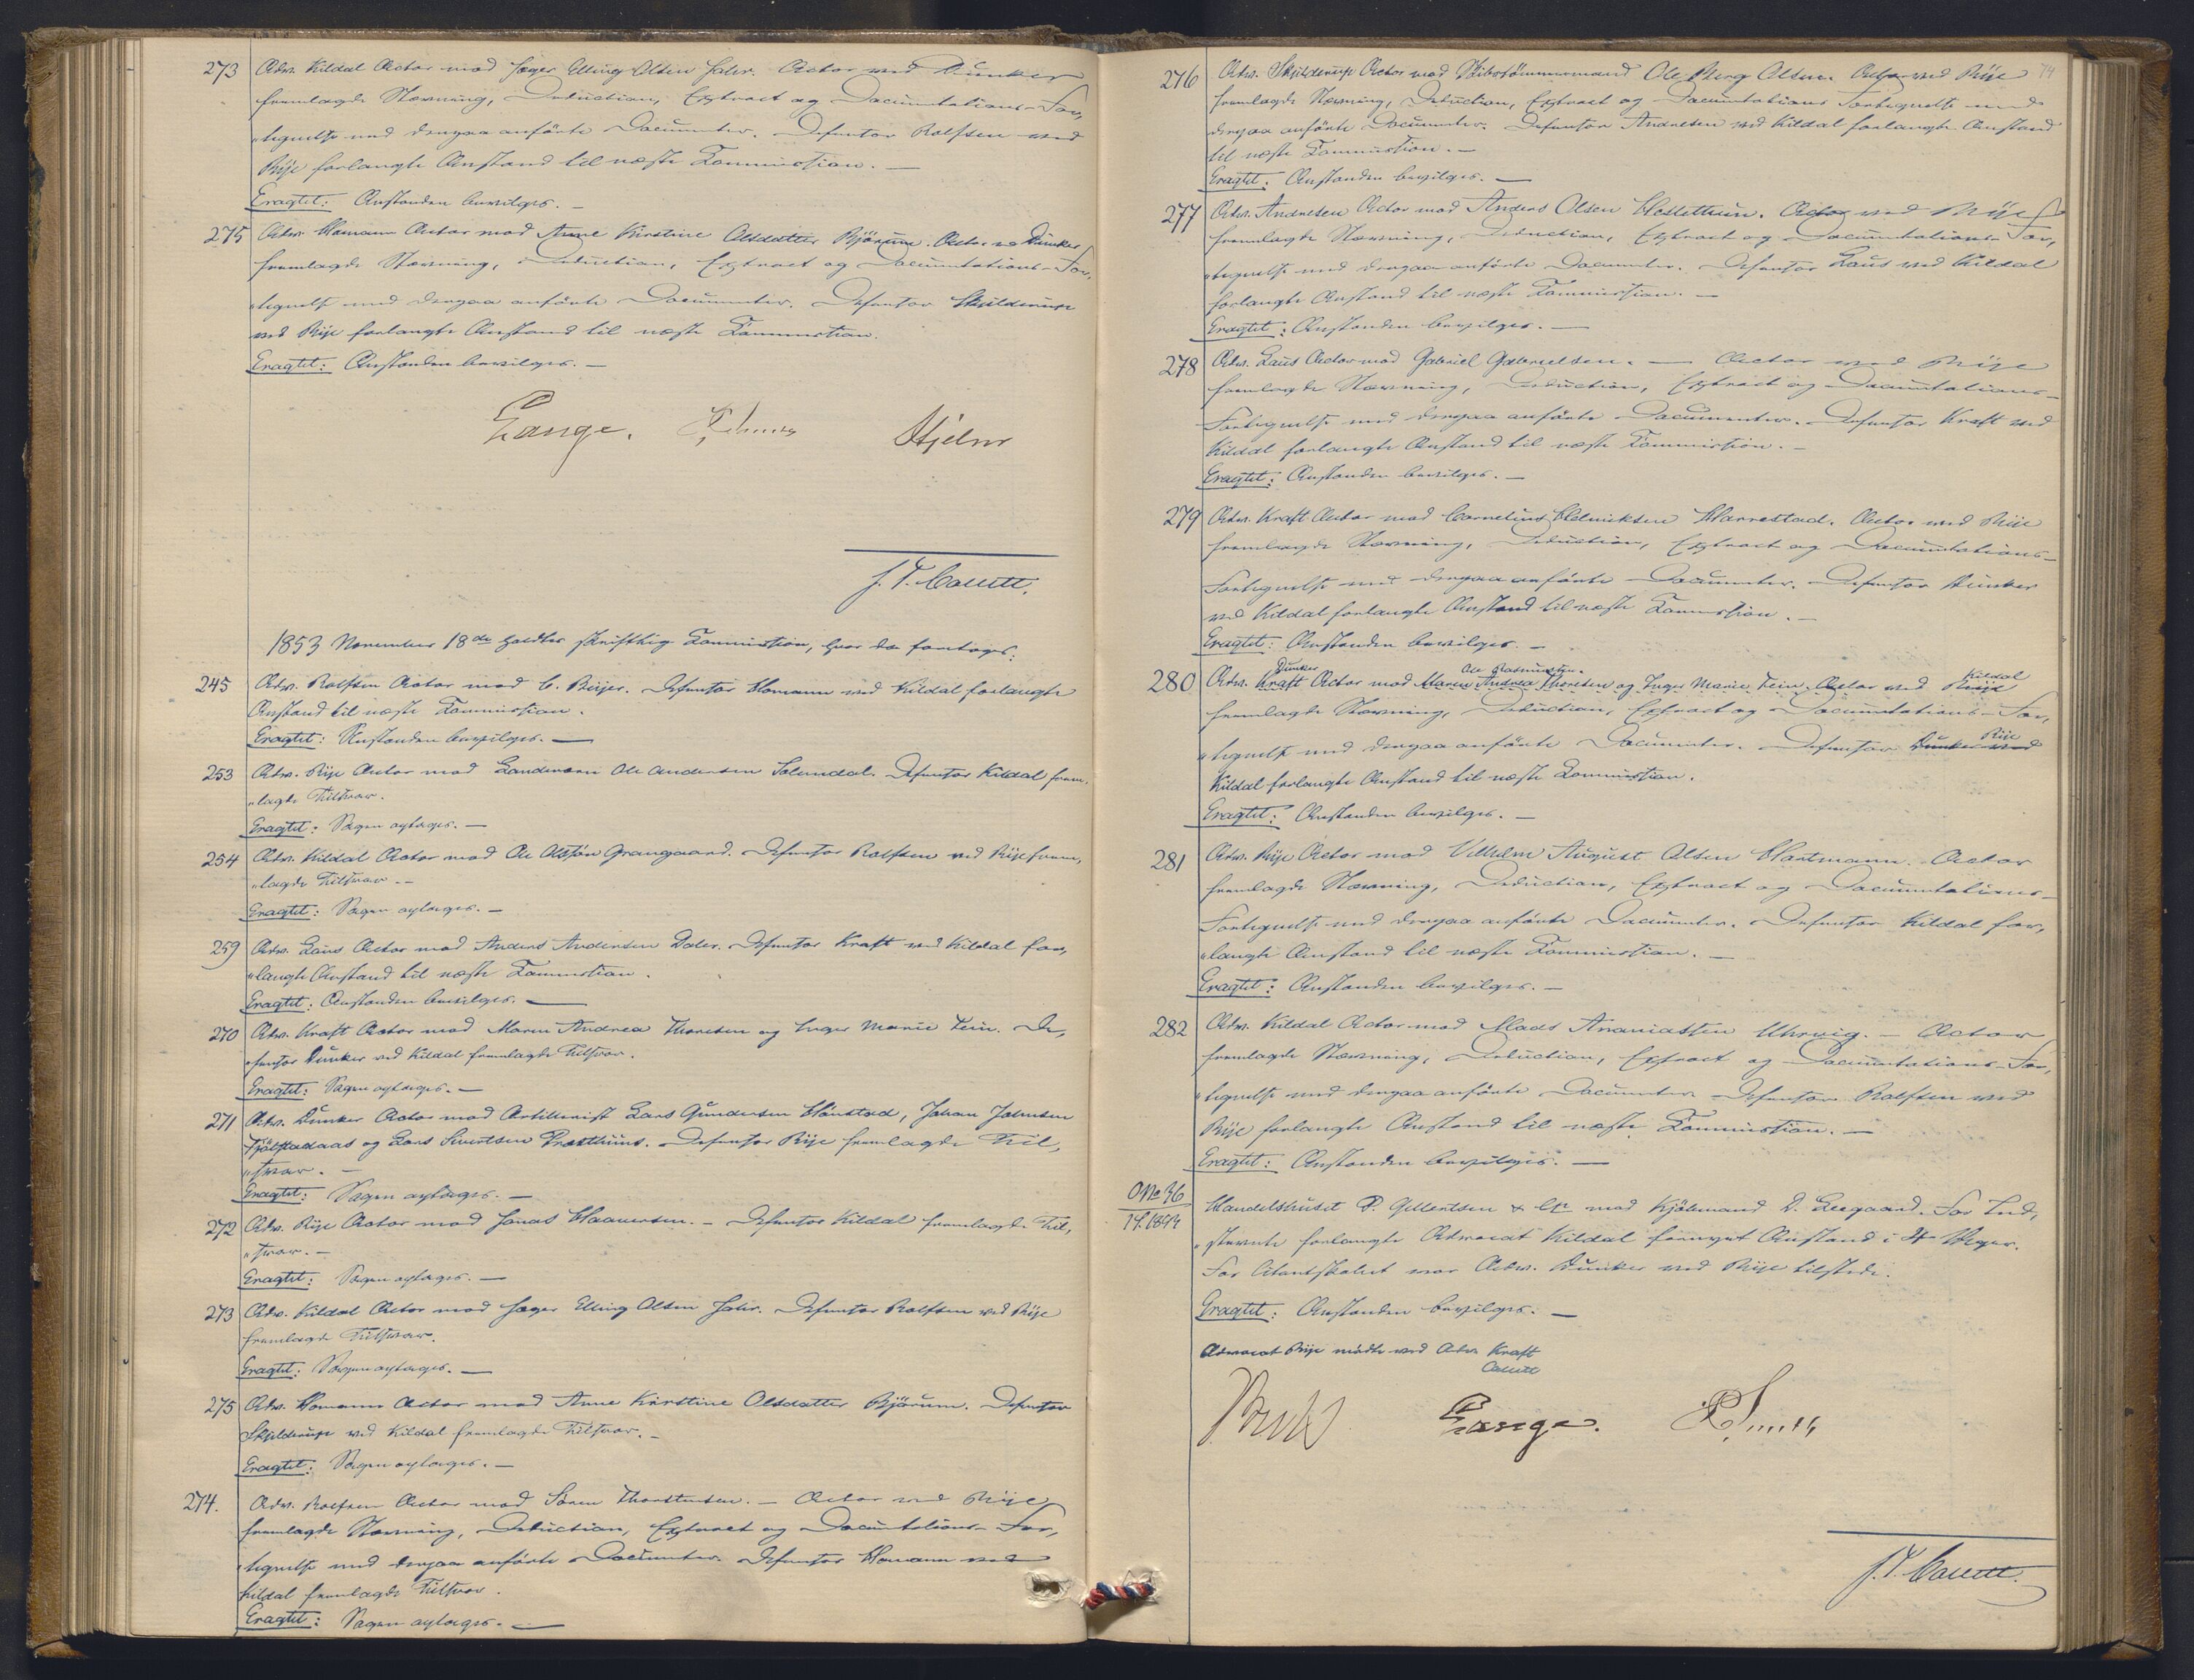 273 Adv. Kildal Actor mod Jæger Elling Olsen Jahr. Actor ved Dunker
fremlagde Stævning, Deduction, Extract og Documentations-For,
"tegnelse med derpaa anførte Documenter. Defensor Rolfsen ved
Rije forlangte Anstand til næste Commission. —
Eragtet: Anstanden bevilges. —
275 Adv. Homann Actor mod Anne Kirstine Olsdatter Bjørum. Actor ved Dunker
fremlagde Stævning, Deduction, Extract og Documentations-For,
"tegnelse med derpaa anførte Documenter. Defensor Skjelderup
ved Rije forlangte Anstand til næste Commission.
Eragtet: Anstanden bevilges. —
Lange. Hjelm
J. P. Collett.
1853 November 18de holdtes skriftlig Commission, hvor da foretoges:
245 Adv. Rolfsen Actor mod C. Beijer. Defensor Homann ved Kildal forlangte
Anstand til næste Commission.
Eragtet: Anstanden bevilges. —
253 Adv. Rije Actor mod Landværn Ole Andersen Solendal. Defensor Kildal frem,
"lagde Tilsvar.
Eragtet: Sagen optages. —
254 Adv. Kildal Actor mod Ole Olssøn Grangaard. Defensor Rolfsen ved Rije frem,
"lagde Tilsvar. —
Eragtet: Sagen optages. —
259 Adv. Laus Actor mod Anders Andersen Doler. Defensor Kraft ved Kildal for,
"langte Anstand til næste Commission.
Eragtet: Anstanden bevilges. —
270 Adv. Kraft Actor mod Maren Andrea Thoresen og Inger Marie Lein. De,
"fensor Dunker ved Kildal fremlagde Tilsvar.
Eragtet: Sagen optages. —
271 Adv. Dunker Actor mod Artillerist Lars Gundersen Hønstad, Johan Johnsen
Fjølstadaas og Lars Sivertsen Præsthuus. Defensor Rije fremlagde Til,
"svar. —
Eragtet: Sagen optages. —
272 Adv. Rije Actor mod Jonas Haavorsen. — Defensor Kildal fremlagde Til,
"svar. —
Eragtet: Sagen optages. —
273 Adv. Kildal Actor mod Jæger Elling Olsen Jahr. Defensor Rolfsen ved Rije
fremlagde Tilsvar.
Eragtet: Sagen optages. —
275 Adv. Homann Actor mod Anne Kirstine Olsdatter Bjørum. Defensor
Skjelderup ved Kildal fremlagde Tilsvar. —
Eragtet: Sagen optages. —
274. Adv. Rolfsen Actor mod Søren Thorstensen. — Actor ved Rije
fremlagde Stævning, Deduction, Extract og Documentations-For,
"tegnelse med derpaa anførte Documenter. Defensor Homann ved
Kildal fremlagde Tilsvar.
Eragtet: Sagen optages. —
74
276 Adv. Skjelderup Actor mod Skibstømmermand Ole Berg Olsen. Actor ved Rije
fremlagde Stævning, Deduction, Extract og Documentations Fortegnelse med
derpaa anførte Documenter. Defensor Andresen ved Kildal forlangte Anstand
til næste Commission. —
Eragtet: Anstanden bevilges. —
277 Adv. Andresen Actor mod Anders Olsen Holstethuen. Actor ved Rije
fremlagde Stævning, Deduction, Extract og Documentations-For,
"tegnelse med derpaa anførte Documenter. Defensor Laus ved Kildal
forlangte Anstand til næste Commission. —
Eragtet: Anstanden bevilges. —
278 Adv. Laus Actor mod Gabriel Gabrielsen. — Actor ved Rije
fremlagde Stævning, Deduction, Extract og Documentations-
Fortegnelse med derpaa anførte Documenter. Defensor Kraft ved
Kildal forlangte Anstand til næste Commission. —
Eragtet: Anstanden bevilges. —
279 Adv. Kraft Actor mod Cornelius Helmiksen Harrestad. Actor ved Rije
fremlagde Stævning, Deduction, Extract og Documentations-
Fortegnelse med derpaa anførte Documenter. Defensor Dunker
ved Kildal forlangte Anstand til næste Commission. —
Eragtet: Anstanden bevilges. —
Dunker Ole Rasmussen. Kildal
280 Adv. Kraft Actor mod Maren Andrea Thoresen og Inger Marie Lein. Actor ved Rije
fremlagde Stævning, Deduction, Extract og Documentations-For,
Rije
"tegnelse med derpaa anførte Documenter. Defensor Dunker ved
Kildal forlangte Anstand til næste Commission.
Eragtet: Anstanden bevilges. —
281 Adv. Rije Actor mod Vilhelm August Olsen Hartmann. Actor
fremlagde Stævning, Deduction, Extract og Documentations-
Fortegnelse med derpaa anførte Documenter. Defensor Kildal for,
"langte Anstand til næste Commission. —
Eragtet: Anstanden bevilges. —
282 Adv. Kildal Actor mod Mads Ananiassen Uhrvig. — Actor
fremlagde Stævning, Deduction, Extract og Documentations-For,
"tegnelse med derpaa anførte Documenter. Defensor Rolfsen ved
Rije forlangte Anstand til næste Commission. —
Eragtet: Anstanden bevilges. —
O No 36 Handelshuset P. Gellertsen & Co mod Kjøbmand D. Leegaard. For Ind,
"stevnte forlangte Advocat Kildal fornyet Anstand i 4 Uger.
For Citantskabet var Adv. Dunker ved Rije tilstede.
Eragtet: Anstanden bevilges. —
Advocat Rije mødte ved Adv. Kraft
Collett
Lange.
J. P. Collett.